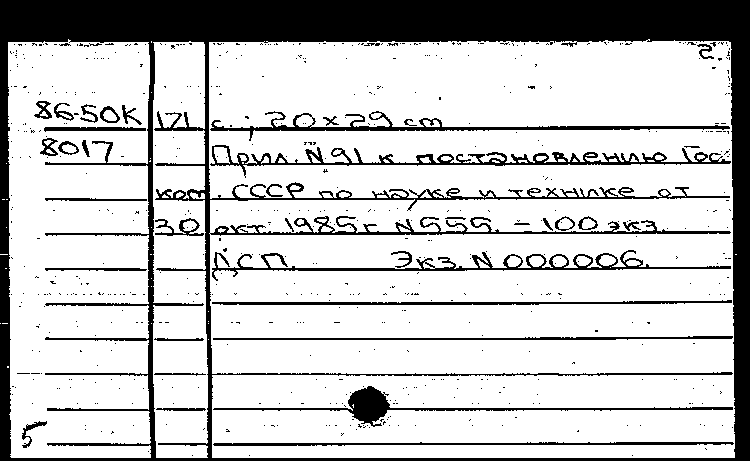 2.
86-50К 171 с. ; 20×29 cm
8017 Прил. N 91 к постановлению Гос.
ком. СССР по науке и технике от
30 окт. 1985 г. N 555. – 100 экз.
ДСП. Экз. N 000006.
5